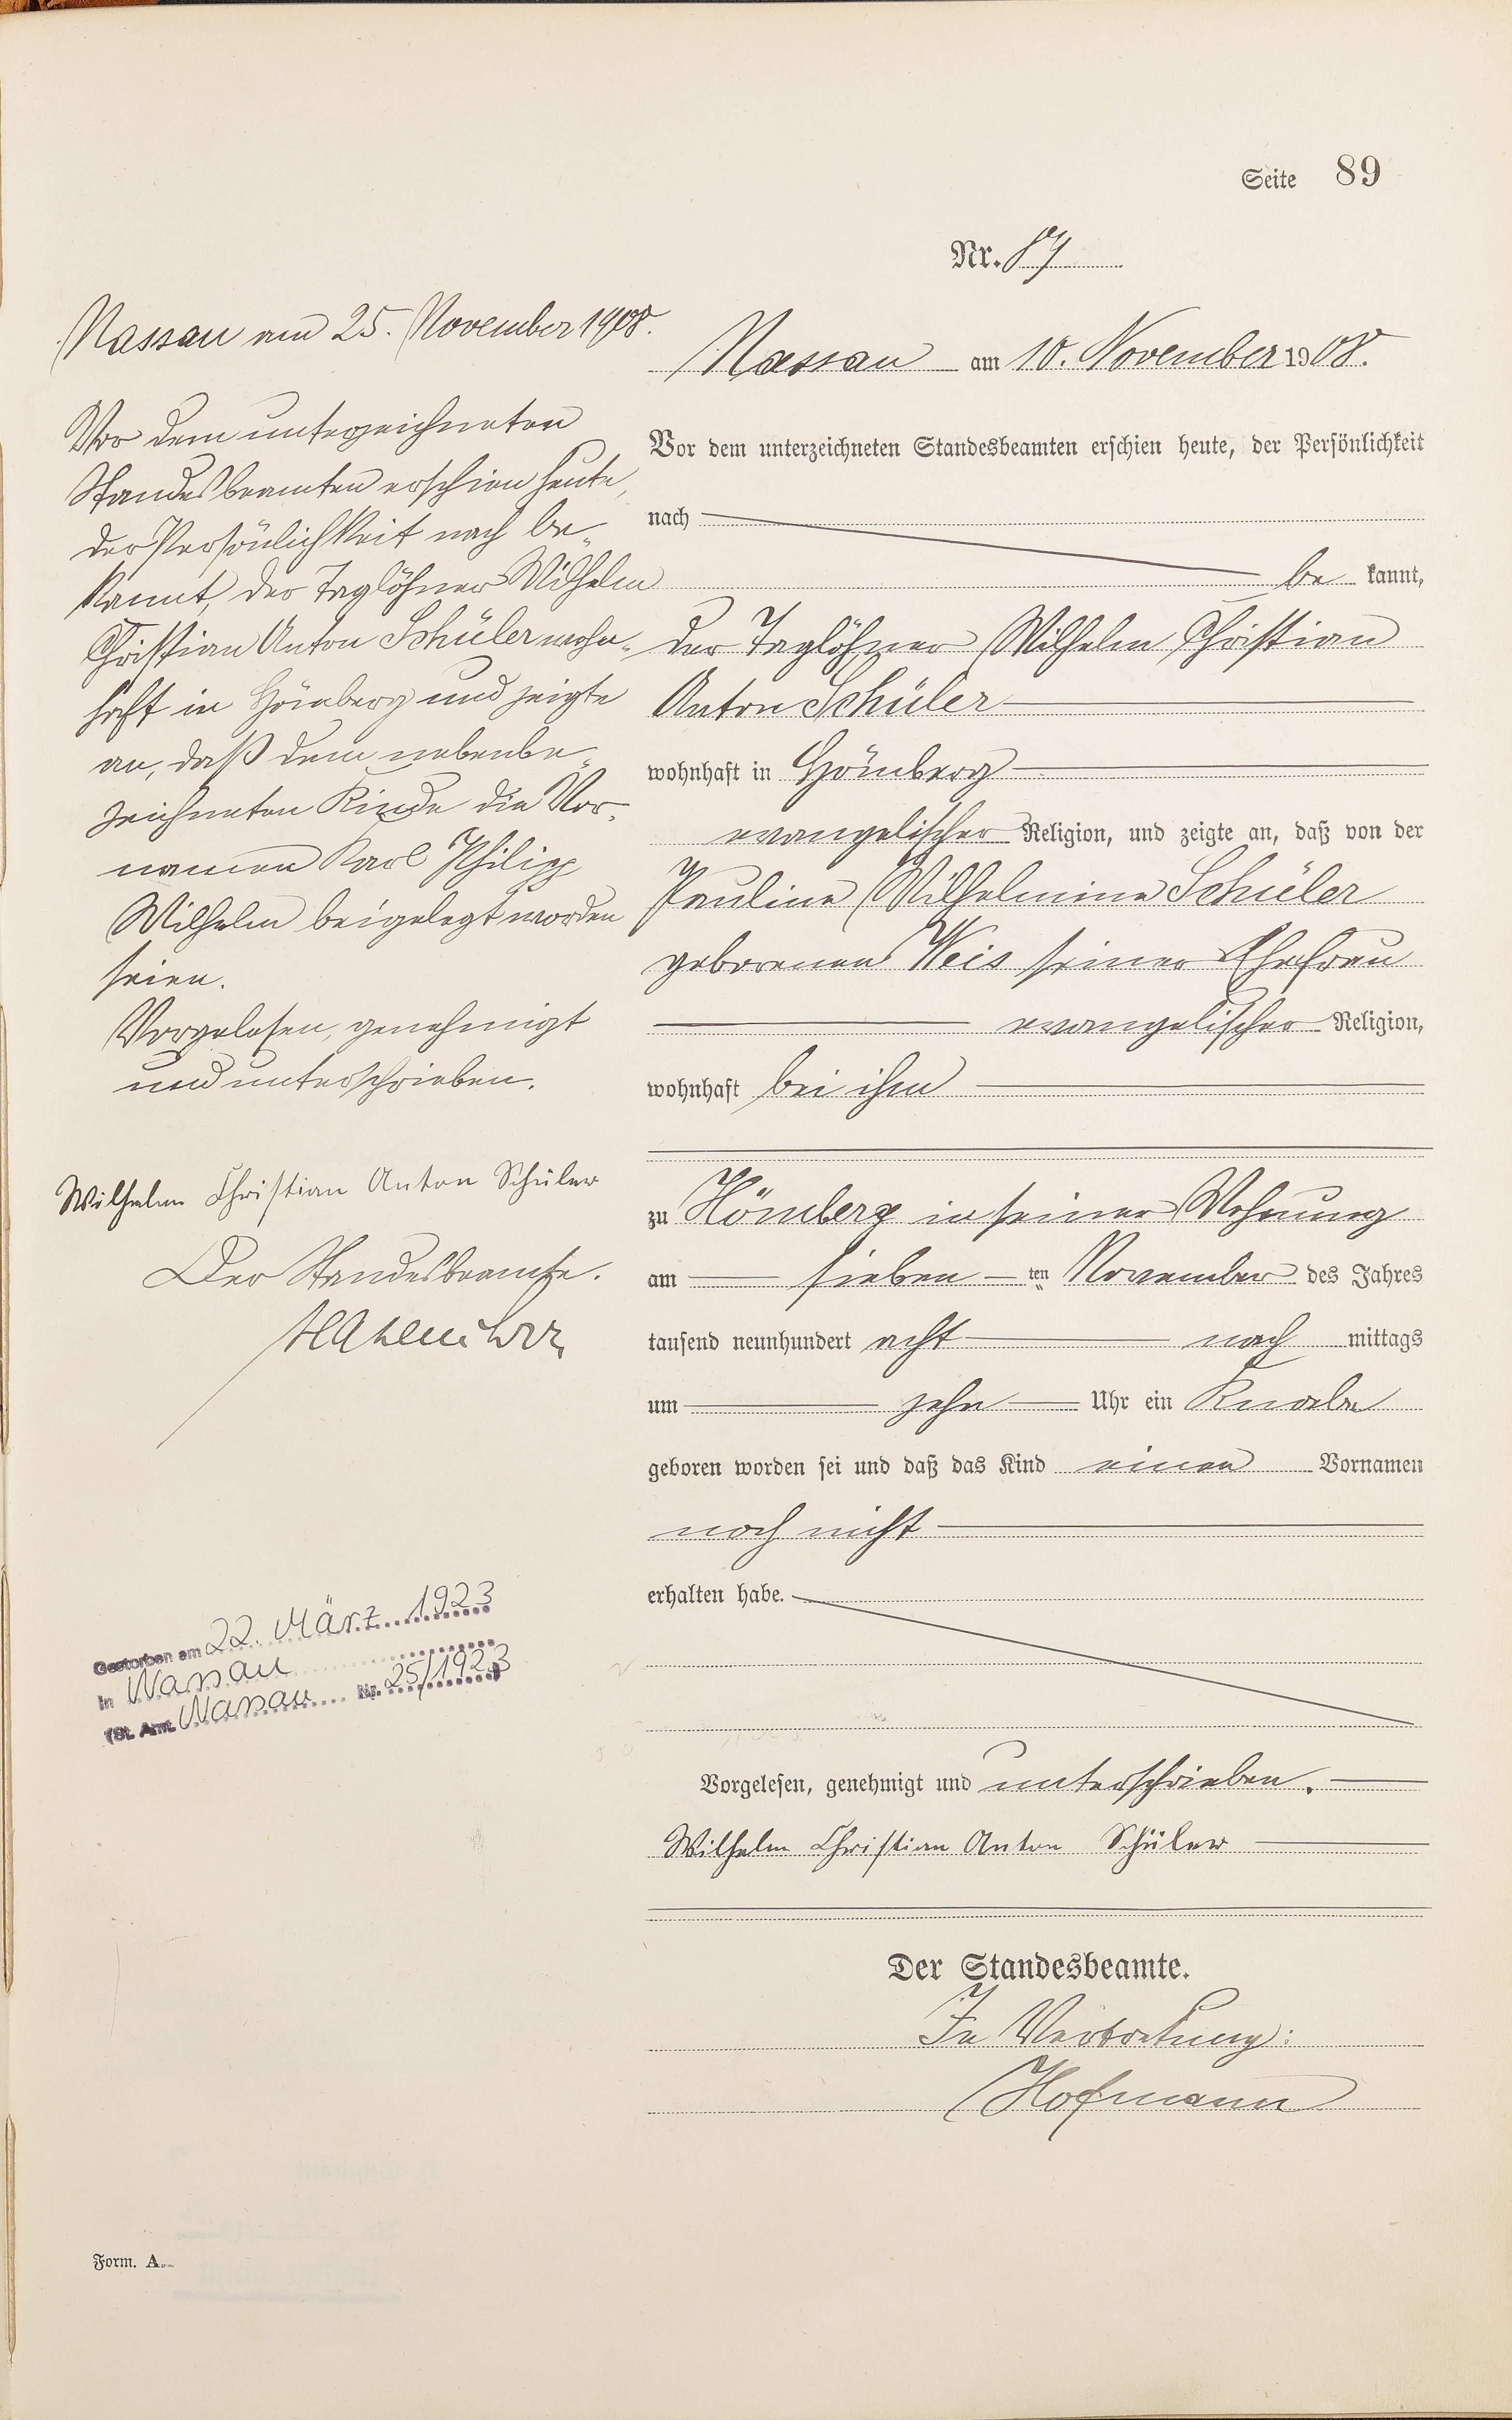 Seite 89
Nr. 87
Nassau am 10. November 1908.
Vor dem unterzeichneten Standesbeamten erschien heute, der Persönlichkeit
nach
be kannt,
der Taglöhner Wilhelm Christian
Anton Schüler
wohnhaft in Hömberg
evangelischer Religion, und zeigte an, daß von der
Pauline Wilhelmine Schüler
geborenen Weis seiner Ehefrau
evangelischer Religion,
wohnhaft bei ihm
zu Hömberg in seiner Wohnung
am sieben ten November des Jahres
tausend neunhundert acht nach mittags
um zehn Uhr ein Knabe
geboren worden sei und daß das Kind einen Vornamen
noch nicht
erhalten habe.
Vorgelesen, genehmigt und unterschrieben.
Wilhelm Christian Anton Schüler
Der Standesbeamte.
In Vertretung:
Hofmann
Nassau am 25. November 1908.
Vor dem unterzeichneten
Standesbeamten erschien heute,
der Persönlichkeit nach be-
kannt, der Taglöhner Wilhelm
Christian Anton Schüler wohn-
haft in Hömberg und zeigte
an, daß dem nebenbe-
zeichneten Kinde die Vor-
namen Karl Philipp
Wilhelm beigelegt worden
seien.
Vorgelesen, genehmigt
und unterschrieben.
Wilhelm Christian Anton Schüler
Der Standesbeamte.
Gestorben am 22. März 1923
in Nassau
(St. Amt Nassau Nr. 25/1923)
Form. A.